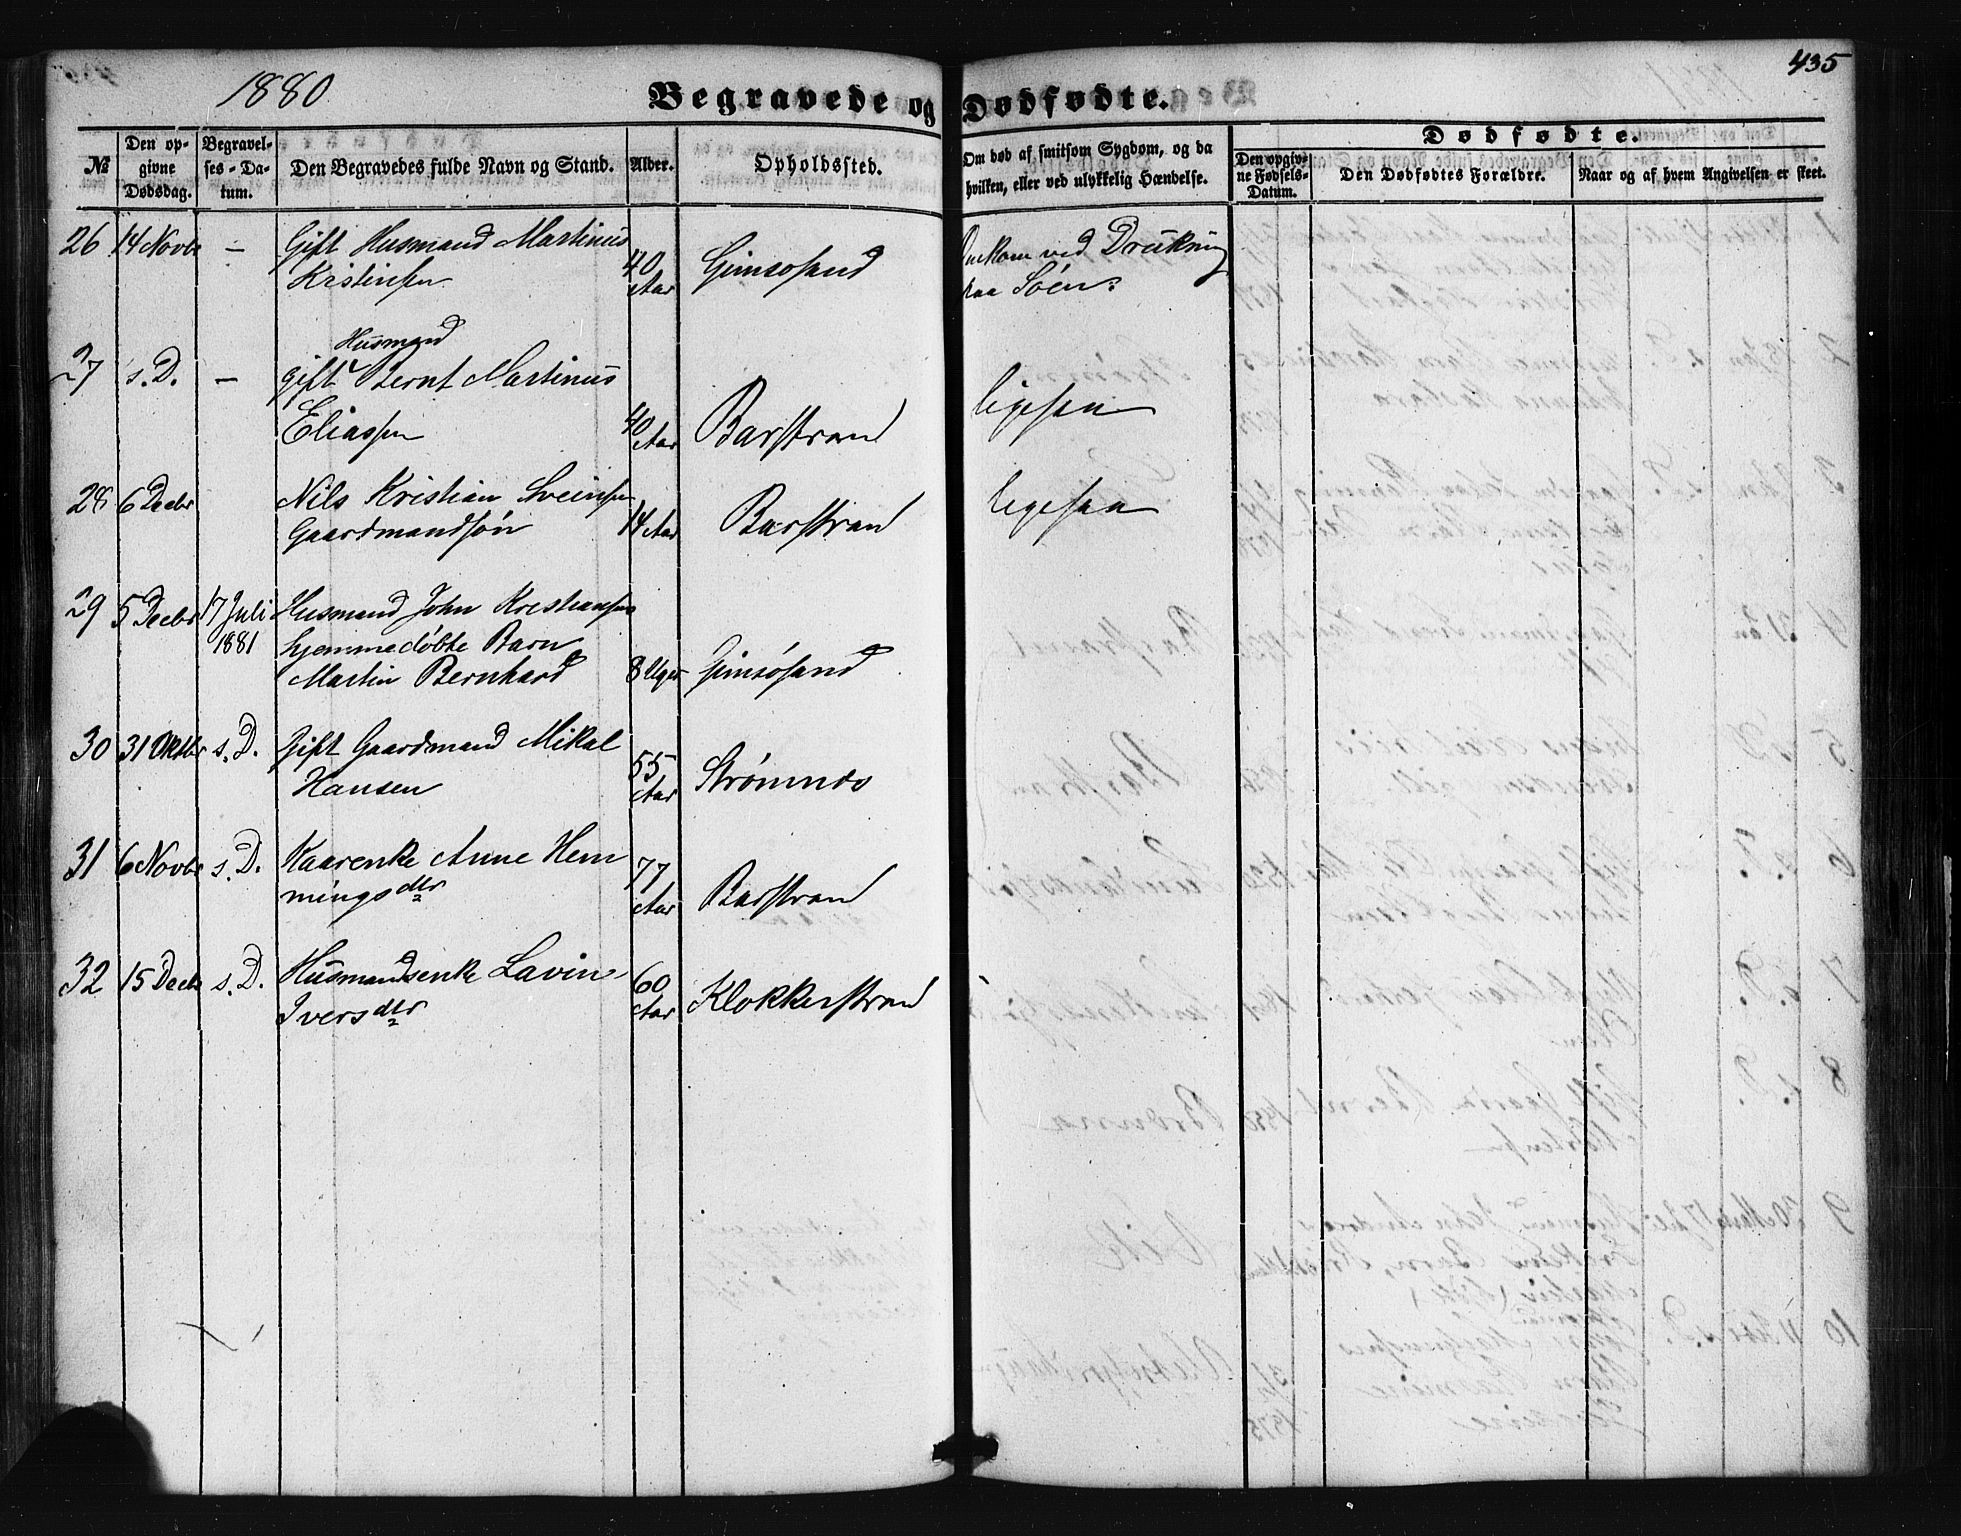 1880
435
Begravede og Dødfødte.
№
Den op-
givne
Dødsdag.
Begravel-
ses-Da-
tum.
Den Begravedes fulde Navn og Stand.
Alder.
Opholdssted.
Om død af smitsom Sygdom, og da
hvilken, eller ved ulykkelig Hændelse.
Dødfødte.
Den opgiv-
ne Fødsels-
Datum.
Den Dødfødtes Forældre.
Naar og af hvem Angivelsen er skeet.
26 14 Novbr — Gift Husmand Martinus
Kristensen
40
Aar
Gimsøsand
Omkom ved Drukning
paa Söen.
27 s. D. — gift Husmand Bernt Martinus
Eliassen
40
Aar
Barstrand
ligesaa
28 6 Decbr Nils Kristian Sveinsen
Gaardmandsön
14 Aar
Barstrand
ligesaa
29 5 Decbr 17 Juli
1881
Husmand John Kristiansens
hjemmedöbte Barn
Martin Bernhard
8 Uger
Gimsösand
30 31 Oktbr s. D. Gift Gaardmand Mikal
Hansen
55
Aar
Strömnes
31 6 Novbr s. D. Kaarenke Anne Hem
mingsdtr
77
Aar
Barstrand
32 15 Decbr s. D. Husmandsenke Lavina
Iversdtr
60
Aar
Klokkerstrand